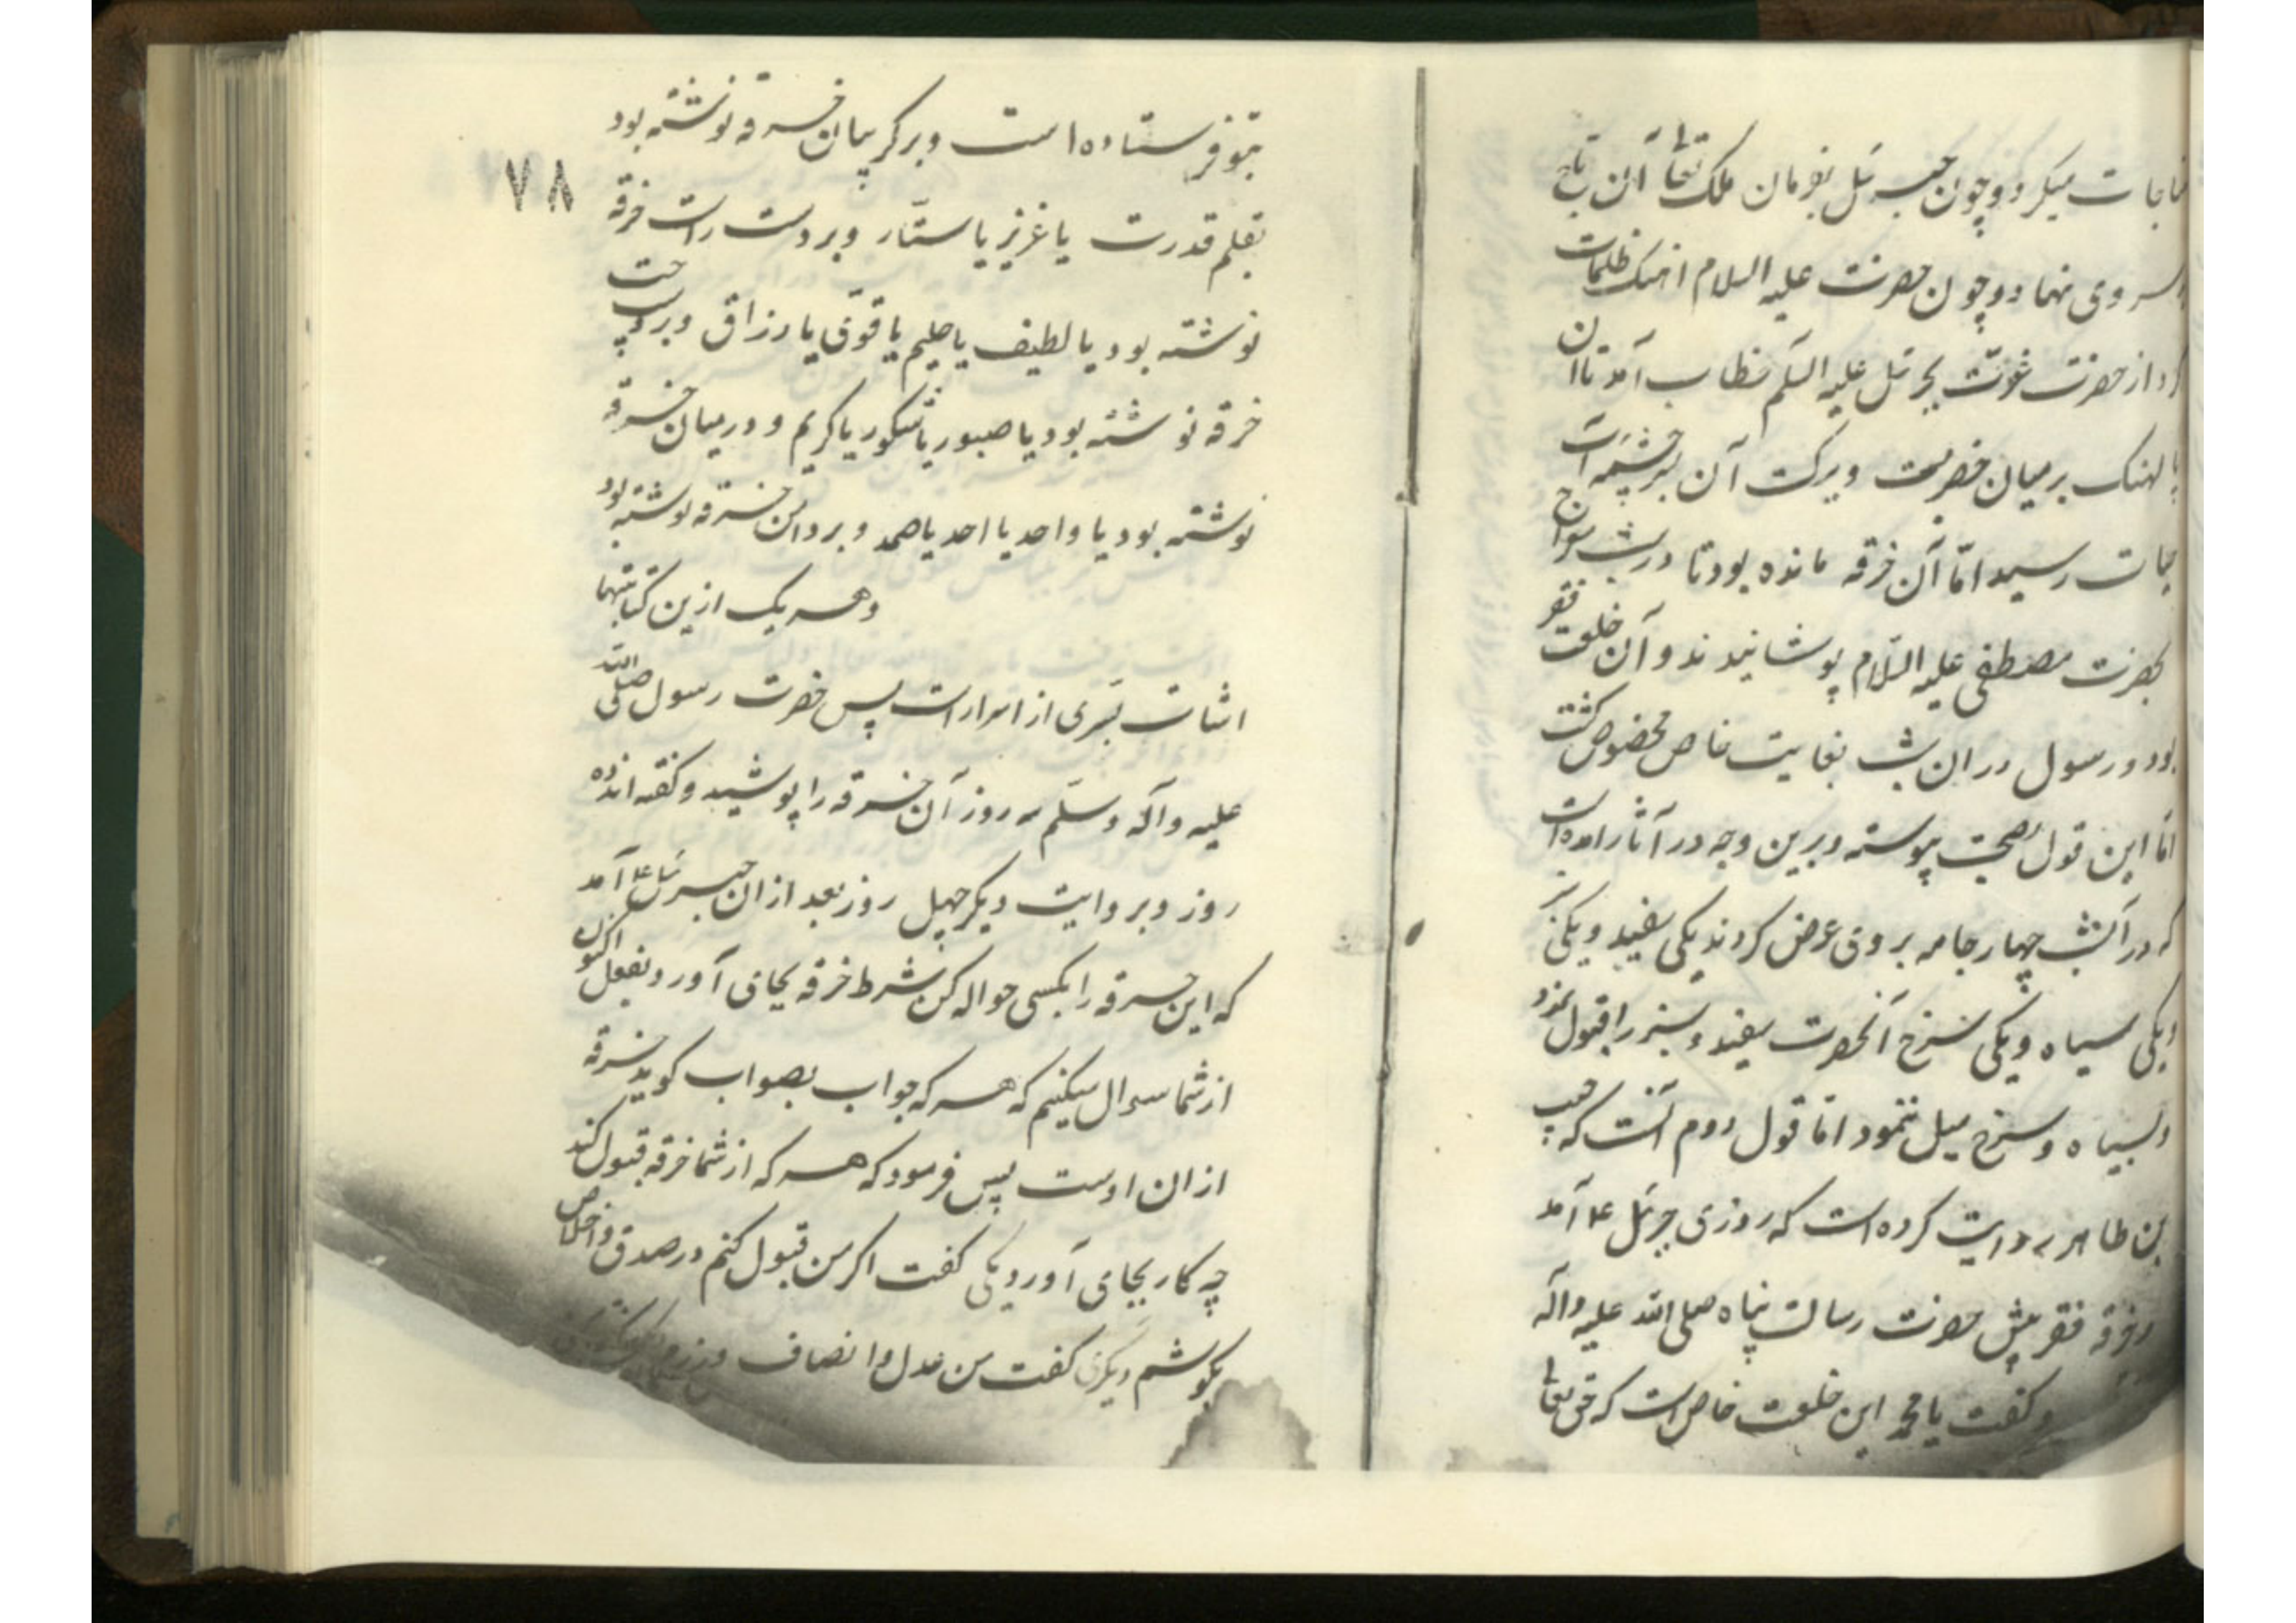 مناجات میکرد و چون جبرئیل بفرمان ملک تعالی آن تاج
بر سر وی نهاد و چون حضرت علیه السلام اهنک ظلمات
کرد از حضرت عزت بجرئیل علیه السلم خطاب آمد تا ان
پالهنک بر میان خضر بست و ببرکت آن بسر چشمه آب
حیات رسید امّا آن خرقه مانده بود تا در شب معراج
بحضرت مصطفی علیه السّلام پوشانیدند و آن خلعت فقر
بود و رسول در ان شب بغایت خاص مخصوص کشت
امّا این قول بصحت پیوسته و برین وجه در آثار امده است
که در آنشب چهار جامه بر وی عرض کردند یکی سفید و یکی سبز
و یکی سیاه و یکی سرخ آنحضرت سفید و سبز را قبول نمود
و بسیاه و سرخ میل ننمود امّا قول دوم آنست که
بن طاهر روایت کرده است که روزی جبرئیل ع آمد
و خرقه فقر پیش حضرت رسالت پناه صلی الله علیه واله
و کفت یا محمد این خلعت خاص است که حق تعالی
۷۸
بتو فرستاده است و بر کریبان خرقه نوشته بود
بقلم قدرت یا عزیز یا ستّار و بر دست راست خرقه
نوشته بود یا لطیف یا حلیم یا قوّی یا رزاق و بر دست چپ
خرقه نوشته بود یا صبور یا شکور یا کریم و در میان خرقه
نوشته بود یا واحد یا احد یا صمد و بر دامن خرقه نوشته بود
و هر یک ازین کتابتها
اشات بسرّی از اسرار است پس حضرت رسول صلی الله
علیه و آله و سلّم سه روز آن خرقه را پوشید و کفته اند ده
روز و بروایت دیکر چهل روز بعد ازان جبرئیل ع آمد
که این خرقه را بکسی حواله کن شرط خرقه بجای آورد بفعل اکنون
از شما سوال میکنیم که هر که جواب بصواب کوید خرقه
ازان اوست پس فرمود که هر که از شما خرقه قبول کند
چه کار بجای آورد یکی کفت اکر من قبول کنم در صدق و اخلاص
بکوشم دیکری کفت من عدل و انصاف